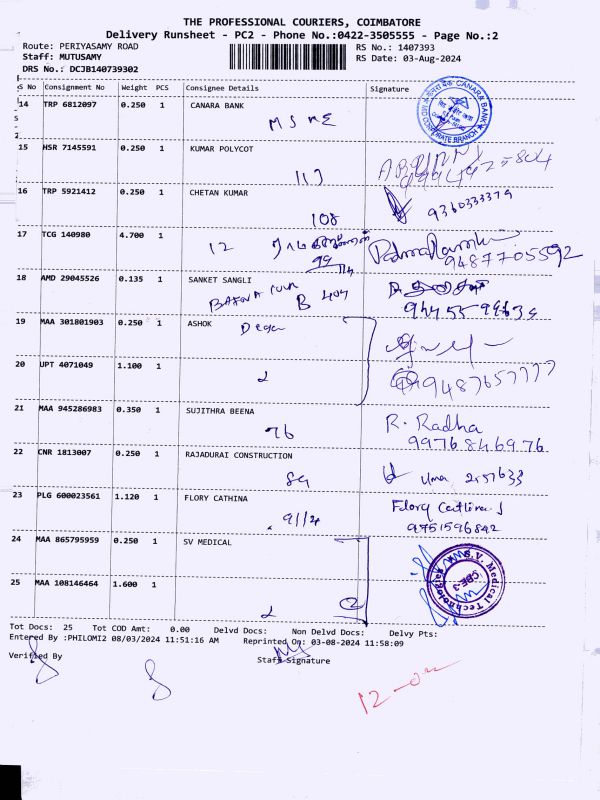 THE PROFESSIONAL COURIERS, COIMBATORE
Delivery Runsheet - PC2 - Phone No.:0422-3505555 - Page No.:2
Route: PERIYASAMY ROAD
RS No.: 1407393
Staff: MUTUSAMY
RS Date: 03-Aug-2024
DRS No.: DCJB140739302
S No Consignment No Weight PCS Consignee Details Signature
14 TRP 6812097 0.250 1 CANARA BANK
MSME
CANARA BANK
CORPORATE BRANCH
15 HSR 7145591 0.250 1 KUMAR POLYCOT
113
16 TRP 5921412 0.250 1 CHETAN KUMAR
108
9360333379
17 TCG 140980 4.700 1
12
9487705592
18 AMD 29045526 0.135 1 SANKET SANGLI
B 404
19 MAA 301801903 0.250 1 ASHOK
20 UPT 4071049 1.100 1
2
21 MAA 945286983 0.350 1 SUJITHRA BEENA
76
R. Radha
9976846976
22 CNR 1813007 0.250 1 RAJADURAI CONSTRUCTION
89
Uma
23 PLG 600023561 1.120 1 FLORY CATHINA
91/2
Flory Catlina J
9751596842
24 MAA 865795959 0.250 1 SV MEDICAL
S.V. Medical Technologies
CBE-3
25 MAA 108146464 1.600 1
2 2
Tot Docs: 25 Tot COD Amt: 0.00 Delvd Docs: Non Delvd Docs: Delvy Pts:
Entered By :PHILOMI2 08/03/2024 11:51:16 AM Reprinted On: 03-08-2024 11:58:09
Verified By Staff Signature